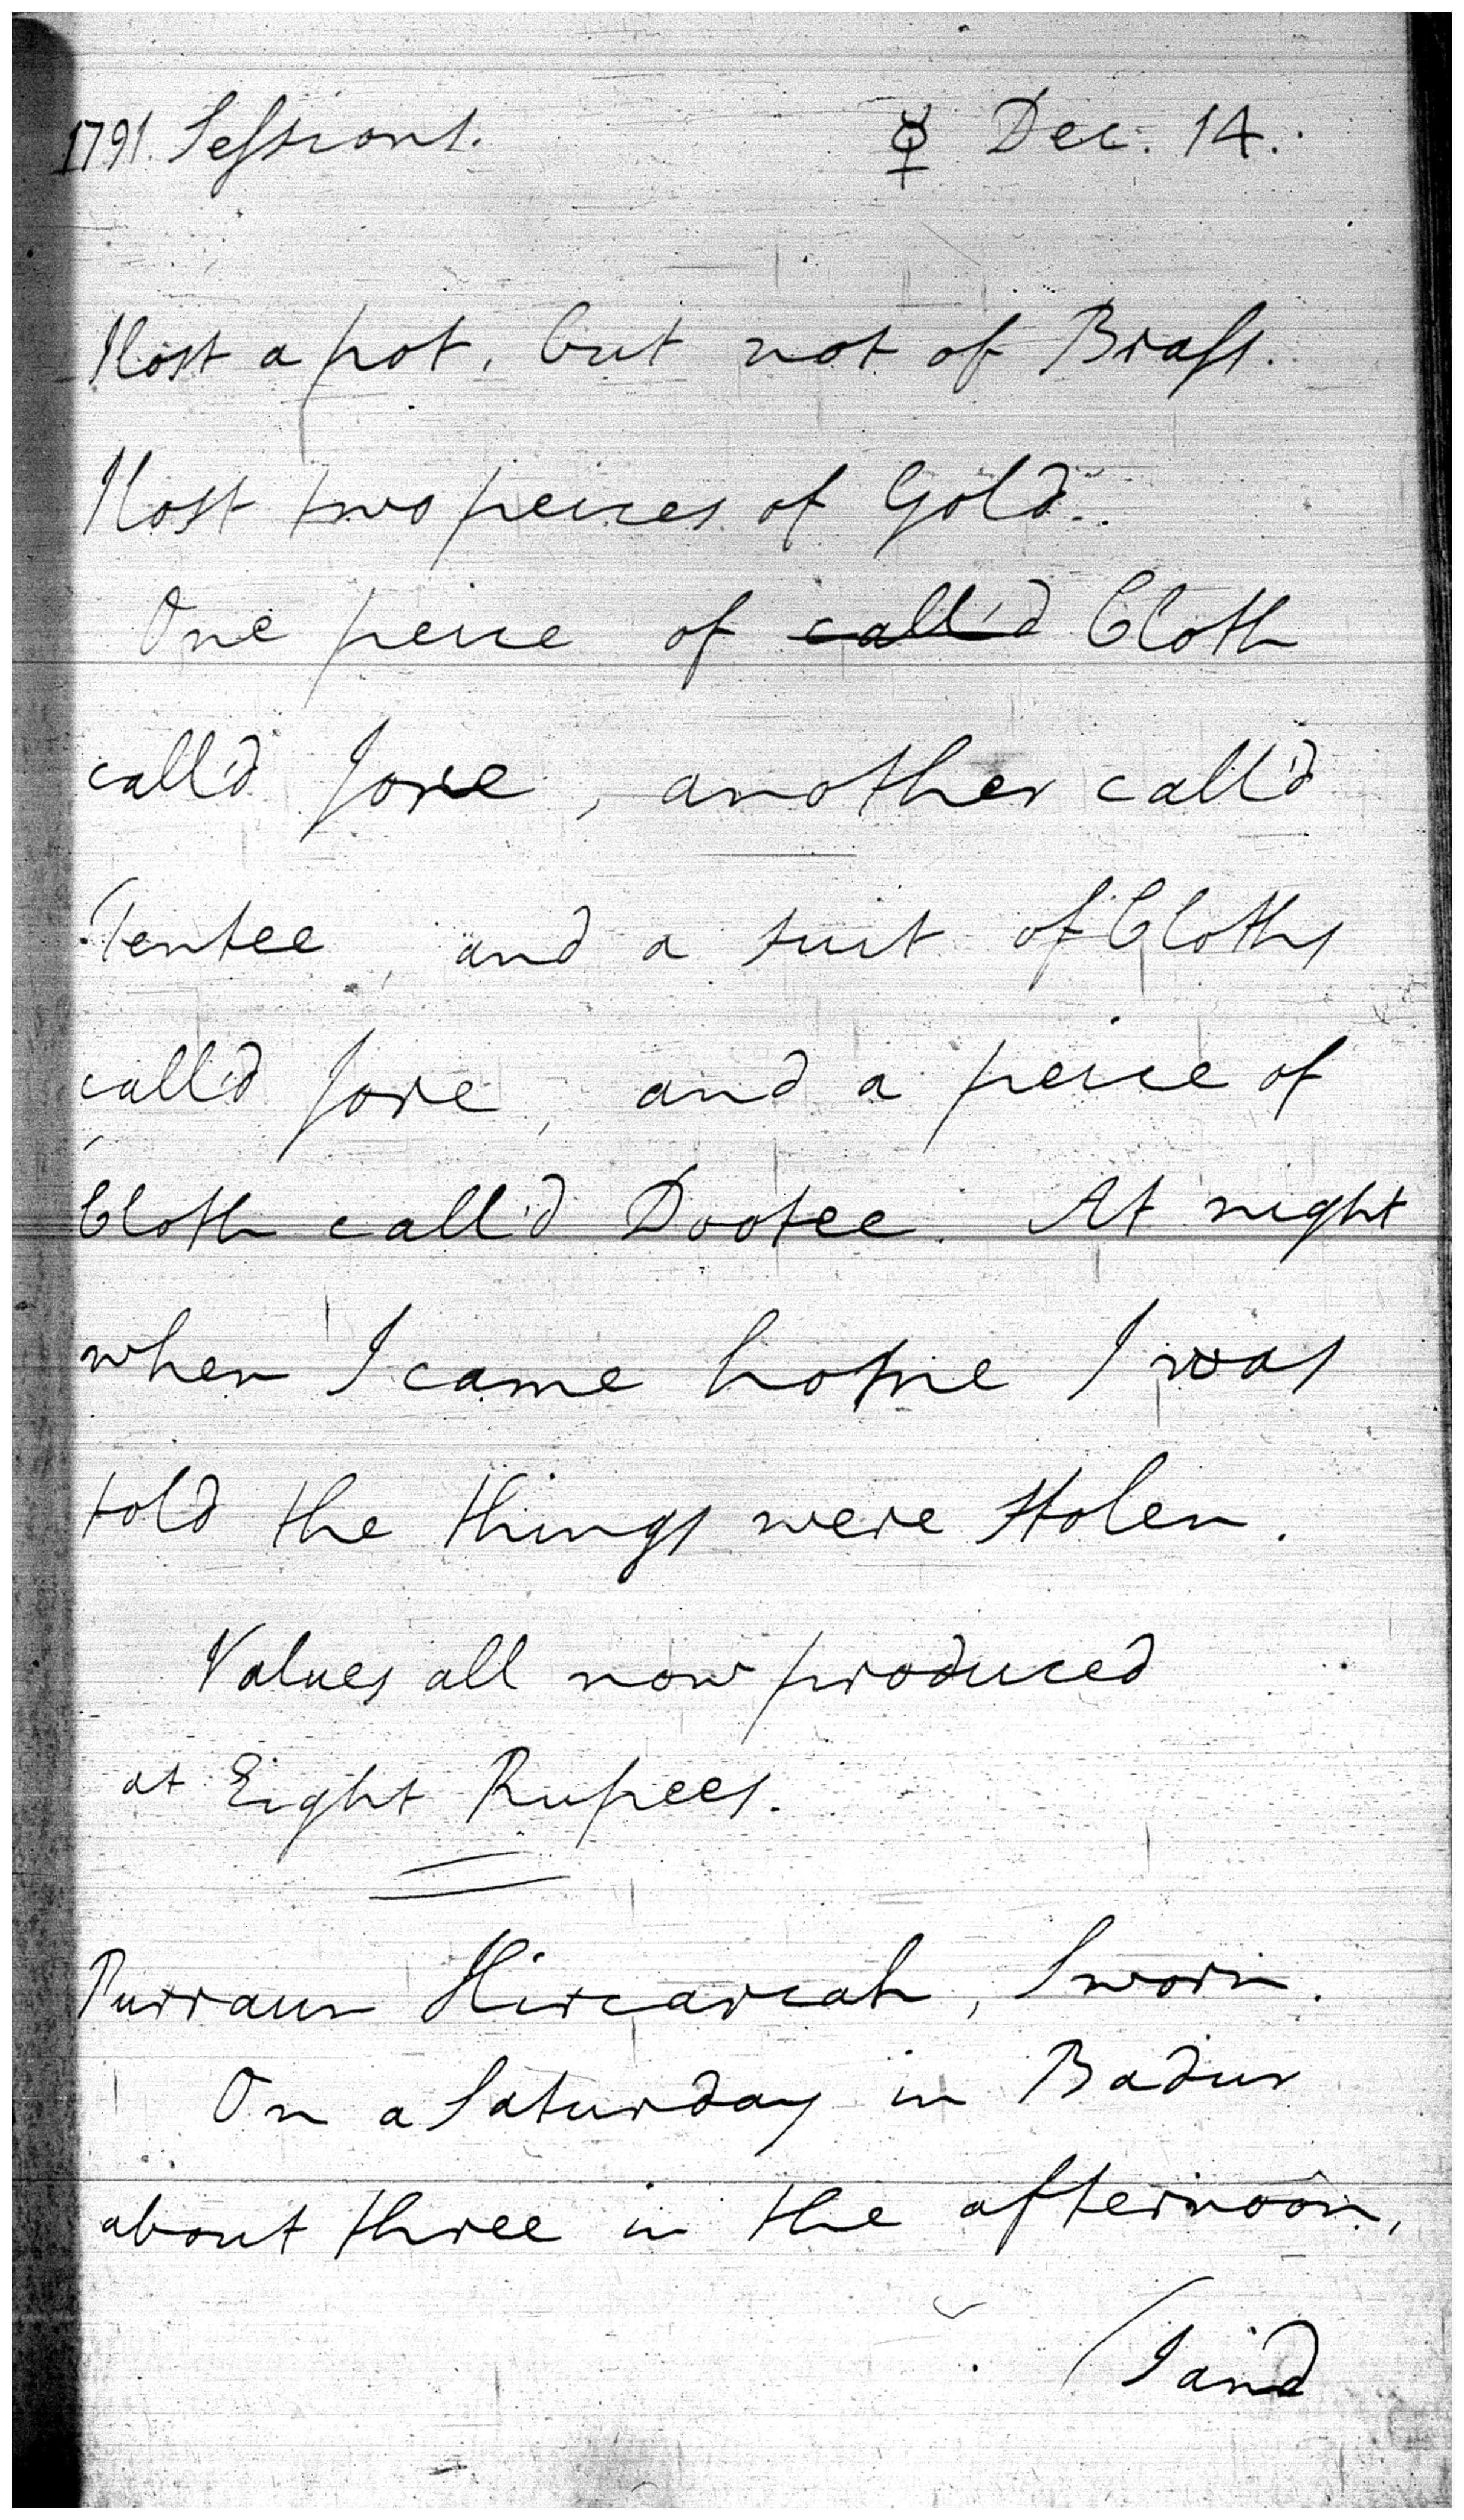 1791. Sessions. ☿ Dec. 14.
I lost a pot, but not of Brass.
I lost two peices of Gold.
One peice of ~~call'd~~ Cloth
call'd Jore, another call'd
Tentee, and a suit of Cloths
call'd Jore, and a peice of
Cloth call'd Dootee. At night
when I came home I was
told the things were stolen.
Values all now produced
at Eight Rupees.
Purraun Hircarcah, Sworn.
On a Saturday in Badur
about three in the afternoon,
/ I and